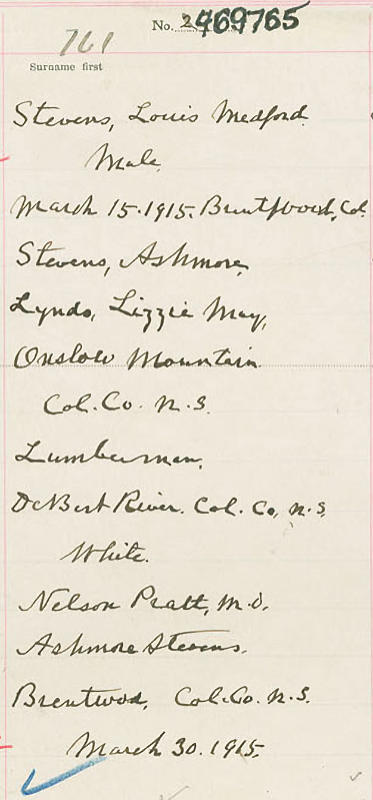 No. 2469765
761
Surname first
Stevens, Louis Medford.
Male.
March 15. 1915. Brentwood, Col.
Stevens, Ashmore,
Lynds, Lizzie May,
Onslow Mountain.
Col. Co. N.S.
Lumberman.
DeBert River. Col. Co. N.S.
White.
Nelson Pratt, M.D.
Ashmore Stevens.
Brentwood, Col. Co. N.S.
March 30. 1915.